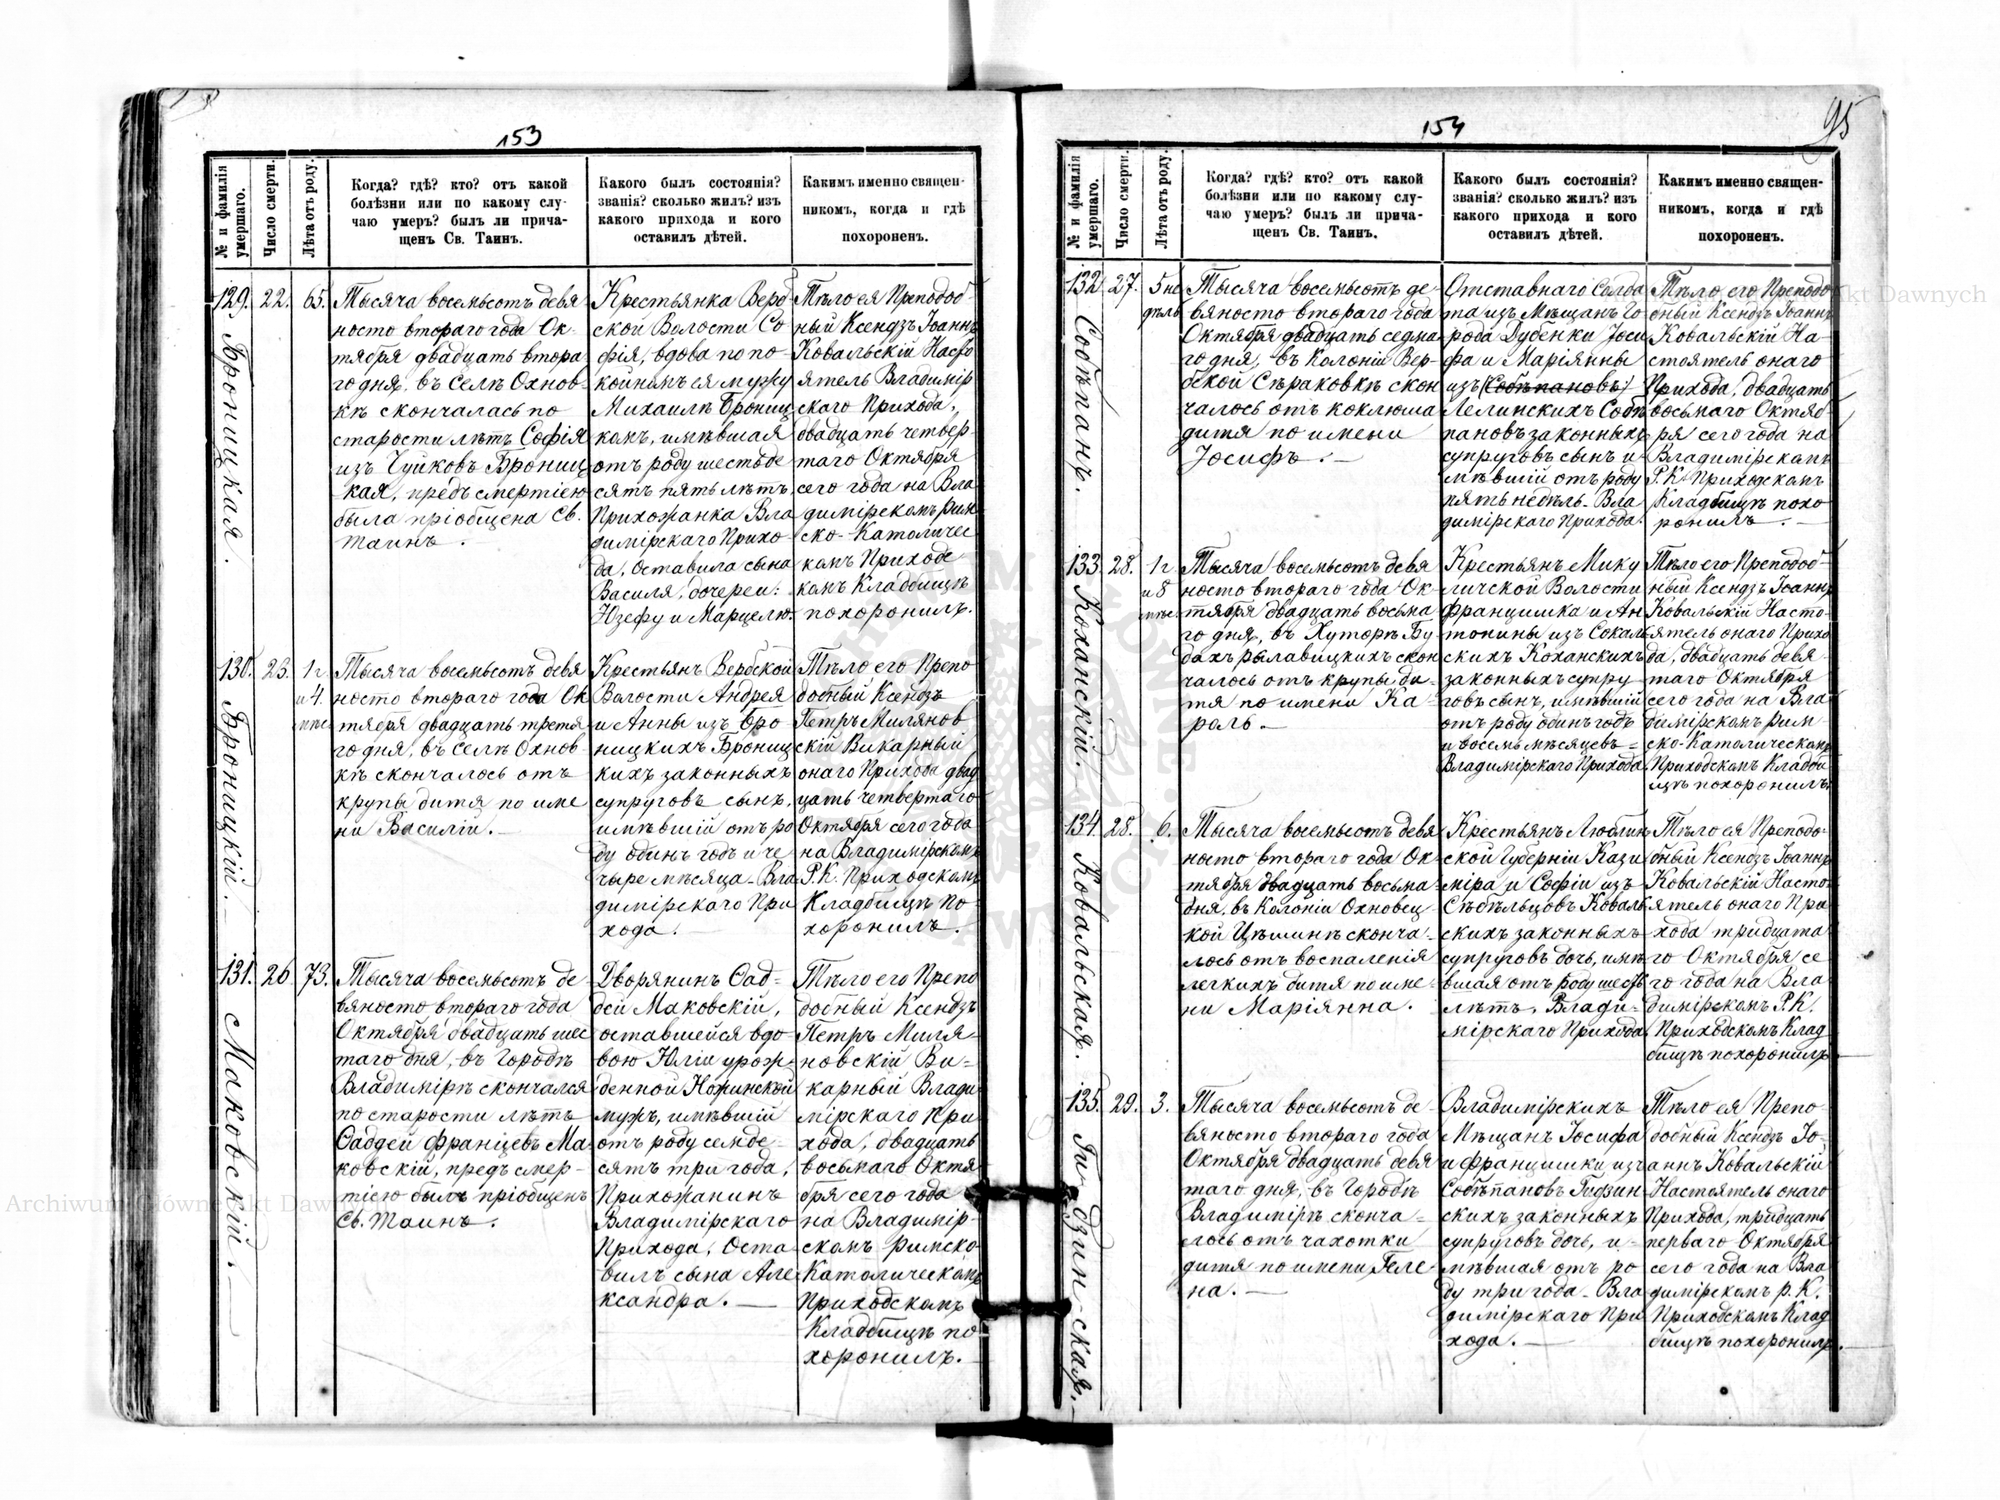 153
№ и фамилія умершаго.
Число смерти.
Лѣта отъ роду.
Когда? гдѣ? кто? отъ какой
болѣзни или по какому слу-
чаю умеръ? былъ ли прича-
щенъ Св. Таинъ.
Какого былъ состоянія?
званія? сколько жилъ? изъ
какого прихода и кого
оставилъ дѣтей.
Какимъ именно священ-
никомъ, когда и гдѣ
похороненъ.
129. Броницкая.
22.
65.
Тысяча восемьсотъ девя
носто втораго года Ок-
тября двадцать втора
го дня, въ Селѣ Охнов-
кѣ скончалась по
старости лѣтъ Софія
изъ Чуйковъ Брониц
кая, предъ смертією
была пріобщена Св.
Таинъ.
Крестьянка Верб
ской Волости Со
фія, вдова по по-
койномъ ея мужу
Михаилѣ Брониц
комъ, имѣвшая
отъ роду шестьде
сятъ пять лѣтъ,
Прихожанка Вла
димірскаго Прихо-
да, Оставила сына
Василя, дочереи:
Юзефу и Марцелю.
Тѣло ея Преподоб-
ный Ксендзъ Іоаннъ
Ковальскій Насто
ятель Владимір
скаго Прихода,
двадцать четвер-
таго Октября
сего года на Вла
димірскомъ Рим
ско-Католичес
комъ Приходс
комъ Кладбищѣ
похоронилъ.
130. Броницкій.
23.
1 г.
и 4
мѣс.
Тысяча восемьсотъ девя
носто втораго года Ок
тября двадцать третя
го дня, въ Селѣ Охнов-
кѣ скончалось отъ
крупы дитя по име
ни Василій.
Крестьянъ Вербской
Волости Андрея
и Анны изъ Бро
ницкихъ Брониц
кихъ законныхъ
супруговъ сынъ,
имѣвшій отъ ро
ду одинъ годъ и че
тыре мѣсяца - Вла
димірскаго При
хода.
Тѣло его Препо
добный Ксендзъ
Петръ Милянов
скій Викарный
онаго Прихода двад
цать четвертаго
Октября сего года
на Владимірскомъ
Р.К. Приходскомъ
Кладбищѣ по-
хоронилъ.
131. Маковскій.
26
73.
Тысяча восемьсотъ де-
вяносто втораго года
Октября двадцать шес
таго дня, въ Городѣ
Владимірѣ скончался
по старости лѣтъ
Ѳаддей Францевъ Ма
ковскій, предъ смер-
тією былъ пріобщенъ
Св. Таинъ.
Дворянинъ Ѳад-
дей Маковскій,
оставшейся вдо-
вою Юліи урож-
денной Ножинской
мужъ, имѣвшій
отъ роду семде-
сятъ три года,
Прихожанинъ
Владимірскаго
Прихода, Оста-
вилъ сына Але
ксандра.
Тѣло его Препо
добный Ксендзъ
Петръ Миля-
новскій Ви-
карный Влади
мірскаго При
хода, двадцать
восьмаго Октя
бря сего года
на Владимір-
скомъ Римско-
Католическомъ
Приходскомъ
Кладбищѣ по
хоронилъ.
154
95
№ и фамилія умершаго.
Число смерти.
Лѣта отъ роду.
Когда? гдѣ? кто? отъ какой
болѣзни или по какому слу-
чаю умеръ? былъ ли прича-
щенъ Св. Таинъ.
Какого былъ состоянія?
званія? сколько жилъ? изъ
какого прихода и кого
оставилъ дѣтей.
Какимъ именно священ-
никомъ, когда и гдѣ
похороненъ.
132. Собѣпанъ.
27.
5 не
дѣль
Тысяча восемьсотъ де-
вяносто втораго года
Октября двадцать седма
го дня, въ Колоніи Вер-
бской Сѣраковкѣ скон
чалось отъ коклюша
дитя по имени
Іосифъ.
Отставнаго Солда
та изъ Мѣщанъ Го
рода Дубенки Іоси
фа и Маріянны
изъ (Собѣпановъ)
Лелинскихъ Собѣ
пановъ законныхъ
супруговъ сынъ и
мѣвшій отъ роду
пять недѣль - Вла
димірскаго Прихода.
Тѣло его Преподо
бный Ксендзъ Іоаннъ
Ковальскій На-
стоятель онаго
Прихода, двадцать
восьмаго Октяб-
ря сего года на
Владимірскомъ
Р.К. Приходскомъ
Кладбищѣ похо
ронилъ.
133. Коханскій.
28.
1 г
и 8
мѣс.
Тысяча восемьсотъ девя
носто втораго года Ок-
тября двадцать восьма
го дня, въ Хуторѣ Бу-
дахъ рылавицкихъ скон
чалось отъ крупы ди-
тя по имени Ка-
роль.
Крестьянъ Мику
личской Волости
Францишка и Ан
тонины изъ Сокаль
скихъ Коханскихъ
законныхъ супру
говъ сынъ, имѣвшій
отъ роду одинъ годъ
и восемь мѣсяцевъ -
Владимірскаго Прихода
Тѣло его Преподоб-
ный Ксендзъ Іоаннъ
Ковальскій Насто-
ятель онаго Прихо
да, двадцать девя
таго Октября
сего года на Вла-
димірскомъ Рим-
ско-Католическомъ
Приходскомъ Кладби
щѣ похоронилъ.
134. Ковальская.
28.
6.
Тысяча восемьсотъ девя
носто втораго года Ок
тября двадцать восьма
дня, въ Колоніи Охновец
кой Цѣшинѣ сконча-
лось отъ воспаленія
легкихъ дитя по име-
ни Маріянна.
Крестьянъ Люблин
ской Губерніи Кази
міра и Софіи изъ
Сѣдѣльцовъ Коваль
скихъ законныхъ
супруговъ дочь, имѣ
вшая отъ роду шесть
лѣтъ, Влади-
мірскаго Прихода
Тѣло ея Преподо-
бный Ксендзъ Іоаннъ
Ковальскій Насто-
ятель онаго При
хода тридцата
го Октября се
го года на Вла-
димірскомъ Р.К.
Приходскомъ Клад
бищѣ похоронилъ.
135. Гидзинская.
29.
3.
Тысяча восемьсотъ де-
вяносто втораго года
Октября двадцать девя
таго дня, въ Городѣ
Владимірѣ сконча-
лось отъ чахотки
дитя по имени Геле
на.
Владимірскихъ
Мѣщанъ Іосифа
и Францишки изъ
Собѣпановъ Гидзин
скихъ законныхъ
супруговъ дочь, и-
мѣвшая отъ ро
ду три года - Вла
димірскаго При
хода.
Тѣло ея Препо-
добный Ксендзъ Іо-
аннъ Ковальскій
Настоятель онаго
Прихода, тридцать
перваго Октября
сего года на Вла
димірскомъ Р.К.
Приходскомъ Клад
бищѣ похоронилъ.
Archiwum Główne Akt Dawnych